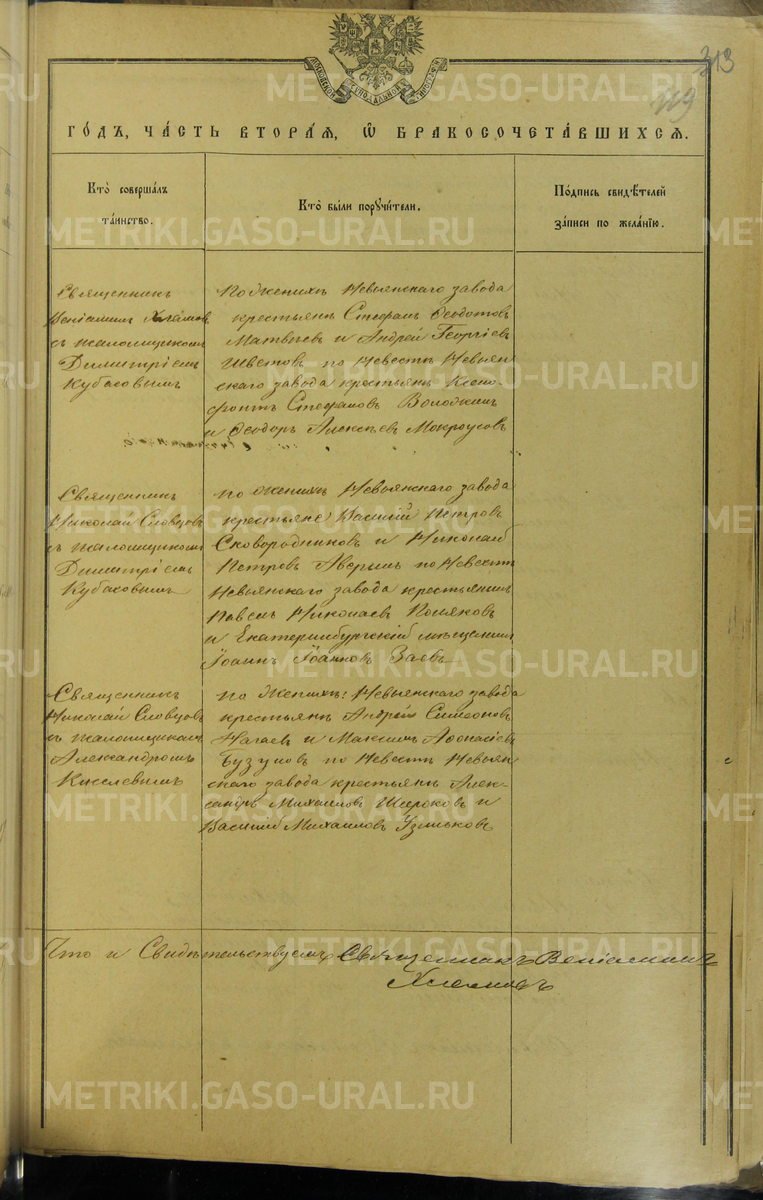 МОСКОВСКОЙ СѴНОДАЛЬНОЙ ТИПОГРАФІИ
313
119
ГО́ДЪ, ЧА́СТЬ ВТОРА́Я, Ѡ БРАКОСОЧЕТА́ВШИХСЯ.
Кто̀ соверша́лъ
та́инство.
Кто̀ бы́ли порꙋчи́тели.
По́дпись свидѣ́телей
за́писи по жела́нїю.
Священникъ
Веніаминъ
съ псаломщикомъ
Димитріемъ
Кубасовымъ
По женихѣ Невьянскаго завода
крестьяне Стефанъ Ѳеодотовъ
Матвѣевъ и Андрей Георгіевъ
Шветовъ по невестѣ Невьян
скаго завода крестьяне Ксено-
фонтъ Стефановъ Володкинъ
и Ѳеодоръ Алексѣевъ Мокроусовъ
Священникъ
Николай Словцовъ
съ псаломщикомъ
Димитріемъ
Кубасовымъ
по женихѣ Невьянскаго завода
крестьяне Василій Петровъ
Сковородниковъ и Николай
Петровъ Аверинъ по невестѣ
Невьянскаго завода крестьянинъ
Павелъ Николаевъ Поляковъ
и Екатеринбургскій мѣщанинъ
Іоаннъ Іоанновъ Заевъ
Священникъ
Николай Словцовъ
съ псаломщикомъ
Александромъ
Киселевымъ
по женихѣ: Невьянскаго завода
крестьяне Андрей Симеоновъ
Нагаевъ и Максимъ Аѳонасіевъ
Бузуновъ по невестѣ Невьян
скаго завода крестьяне Алек-
сандръ Михаиловъ Широковъ и
Василій Михаиловъ
Что и Свидѣтельствуемъ Священникъ Веніаминъ
METRIKI.GASO-URAL.RU